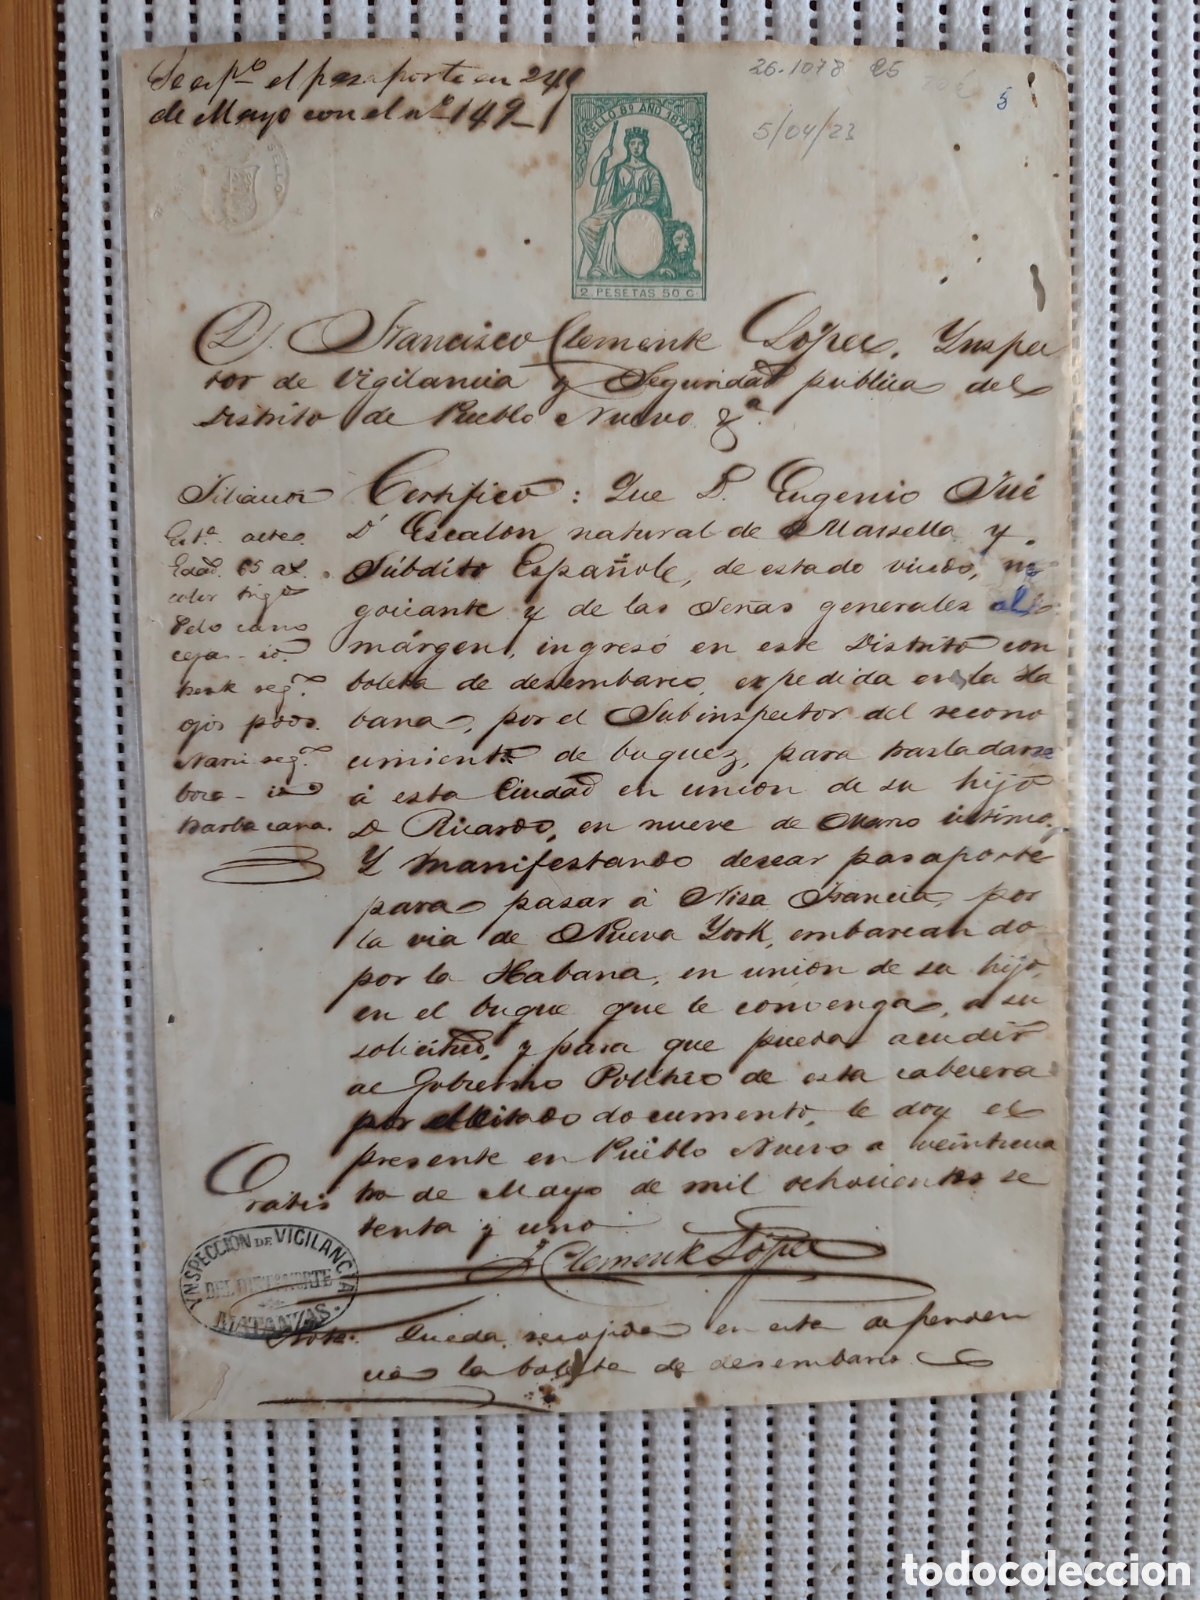 el pasaporte en 24
de Mayo con el nº 149
26.1078 25
5/04/23
5
SELLO 8º AÑO 1871
2. PESETAS 50 C.
D. Francisco Clemente López, Ynspec
tor de Vigilancia y Seguridad publica del
Distrito de Pueblo Nuevo &ª
Filiacion
Estª alta
Edad 65 as.
color trigº
Pelo cano
ceja - id.
frente regr.
ojos pdos.
Nariz regr.
boca - id
barba cana.
Certifico: Que D. Eugenio Jué
D' Escalon natural de Marsella y
Súbdito Español, de estado viudo, ne
gociante y de las Señas generales al
márgen, ingresó en este Distrito con
boleta de desembarco, expedida en la Ha
bana, por el Subinspector del recono
cimiento de buquez, para trasladarse
á esta Ciudad en union de su hijo
D Ricardo, en nueve de Marzo último,
Y manifestando desear pasaporte
para pasar á Niza Francia, por
la via de Nueva York, embarcando
por la Habana, en union de su hijo,
en el buque que le convenga, a su
solicitud, y para que pueda acudir
al Gobierno Politico de esta cabecera
por el citado documento, le doy el
presente en Pueblo Nuevo a veinticua
tro de Mayo de mil ochocientos se
tenta y uno
Gratis
Fº Clemente López
YNSPECCION DE VIGILANCIA
DEL DISTº NORTE
MATANZAS
Nota: Queda recojida en esta dependen
cia la boleta de desembarco.
todocoleccion